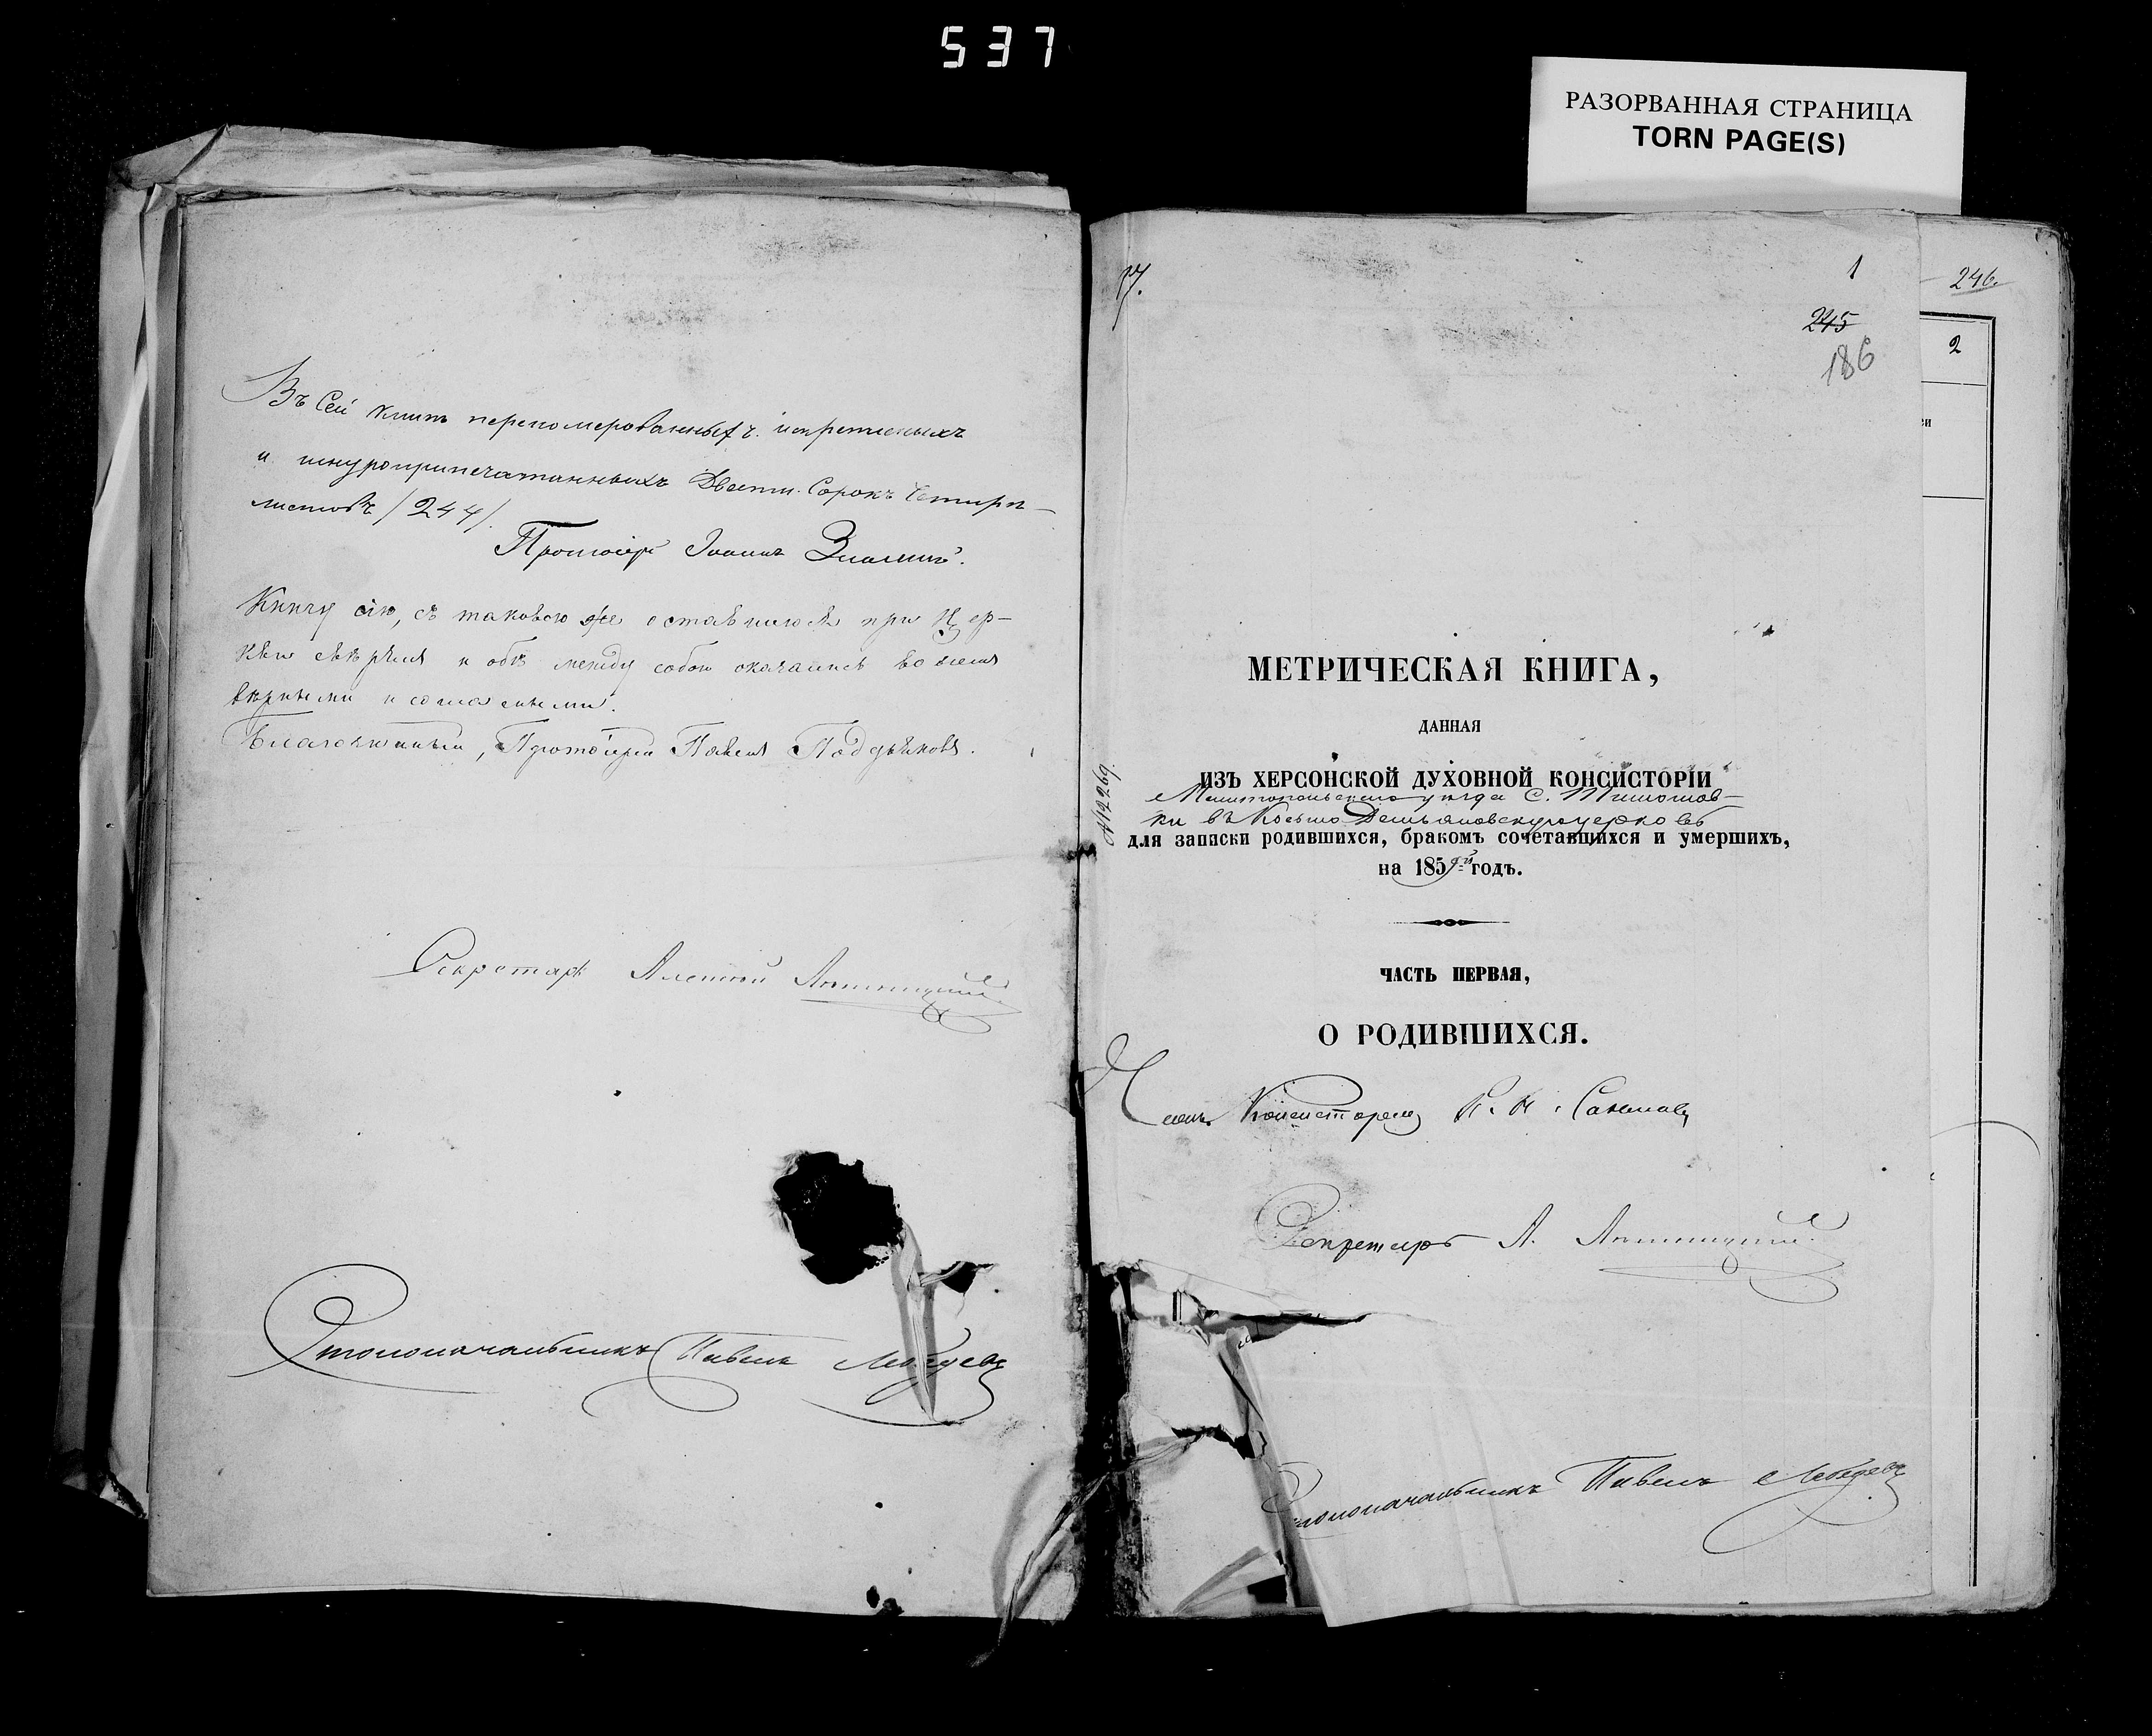 537
РАЗОРВАННАЯ СТРАНИЦА
TORN PAGE(S)
Въ сей книгѣ переномерованныхъ. искрепленыхъ
и шнуроприпечатанныхъ Двѣсти. Сорокъ Четыри
листовъ /244/.
Протоіерей Іоаннъ
Книгу сію, съ таковою же оставшиюся при Цер-
кви свѣрялъ и обѣ между собою оказались во всемъ
вѣрными и согласными.
Благочинный, Протоіерей Павелъ Поддьяковъ.
Секретарь
Столоначальникъ Павелъ Лебедевъ
1
245
186
246.
2
МЕТРИЧЕСКАЯ КНИГА,
ДАННАЯ
ИЗЪ ХЕРСОНСКОЙ ДУХОВНОЙ КОНСИСТОРІИ
Мелитопольскаго уѣзда С. Тимошов-
ки въ Косьмо Демьяновскую церковь
для записки родившихся, бракомъ сочетавшихся и умершихъ,
на 1859й годъ.
№ 12269.
ЧАСТЬ ПЕРВАЯ,
О РОДИВШИХСЯ.
Членъ Консисторіи
Секретарь А.
Столоначальникъ Павелъ Лебедевъ